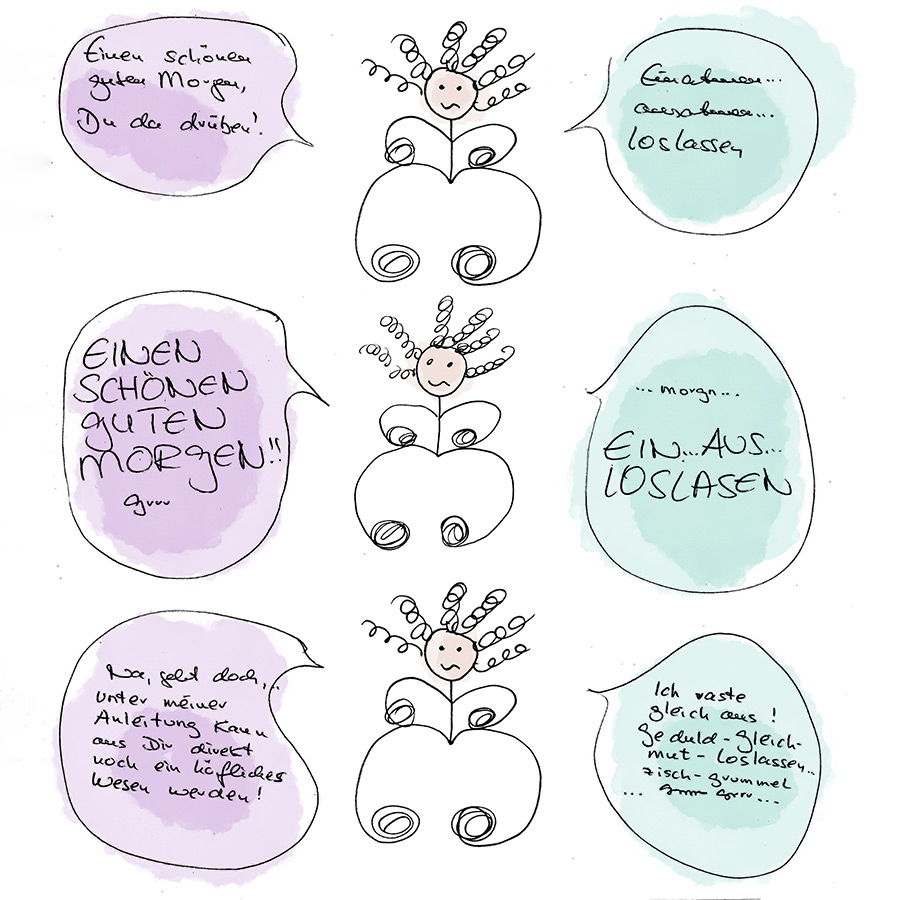 Einen schönen
guten Morgen,
Du da drüben!
Einatmen...
ausatmen...
loslassen
EINEN
SCHÖNEN
gUTEN
MORgEN!!
grrr
... morgn...
EIN...AUS...
LOSLASEN
Na, geht doch,..
unter meiner
Anleitung kann
aus Dir direkt
noch ein höfliches
Wesen werden!
Ich raste
gleich aus!
geduld-gleich-
mut-loslassen..
zisch-grummel
... grrr...